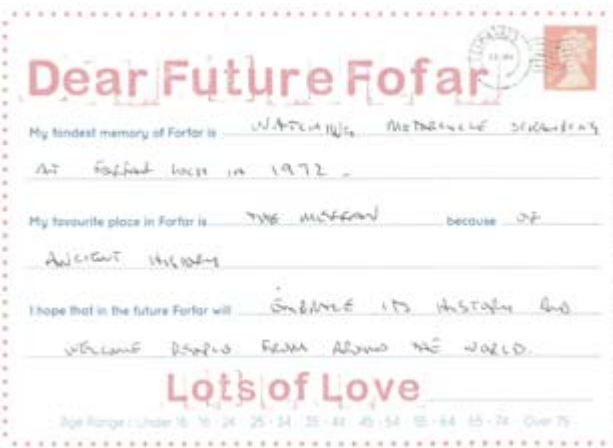 Dear Future Fofar
My fondest memory of Forfar is WATCHING MOTORCYCLE SCRAMBLING
AT FORFAR LOCH IN 1972.
My favourite place in Forfar is THE MUSEUM because OF
ANCIENT HISTORY
I hope that in the future Forfar will EMBRACE ITS HISTORY AND
WELCOME PEOPLE FROM AROUND THE WORLD.
Lots of Love
Age Range: Under 16 16 - 24 25 - 34 35 - 44 45 - 54 55 - 64 65 - 74 Over 75